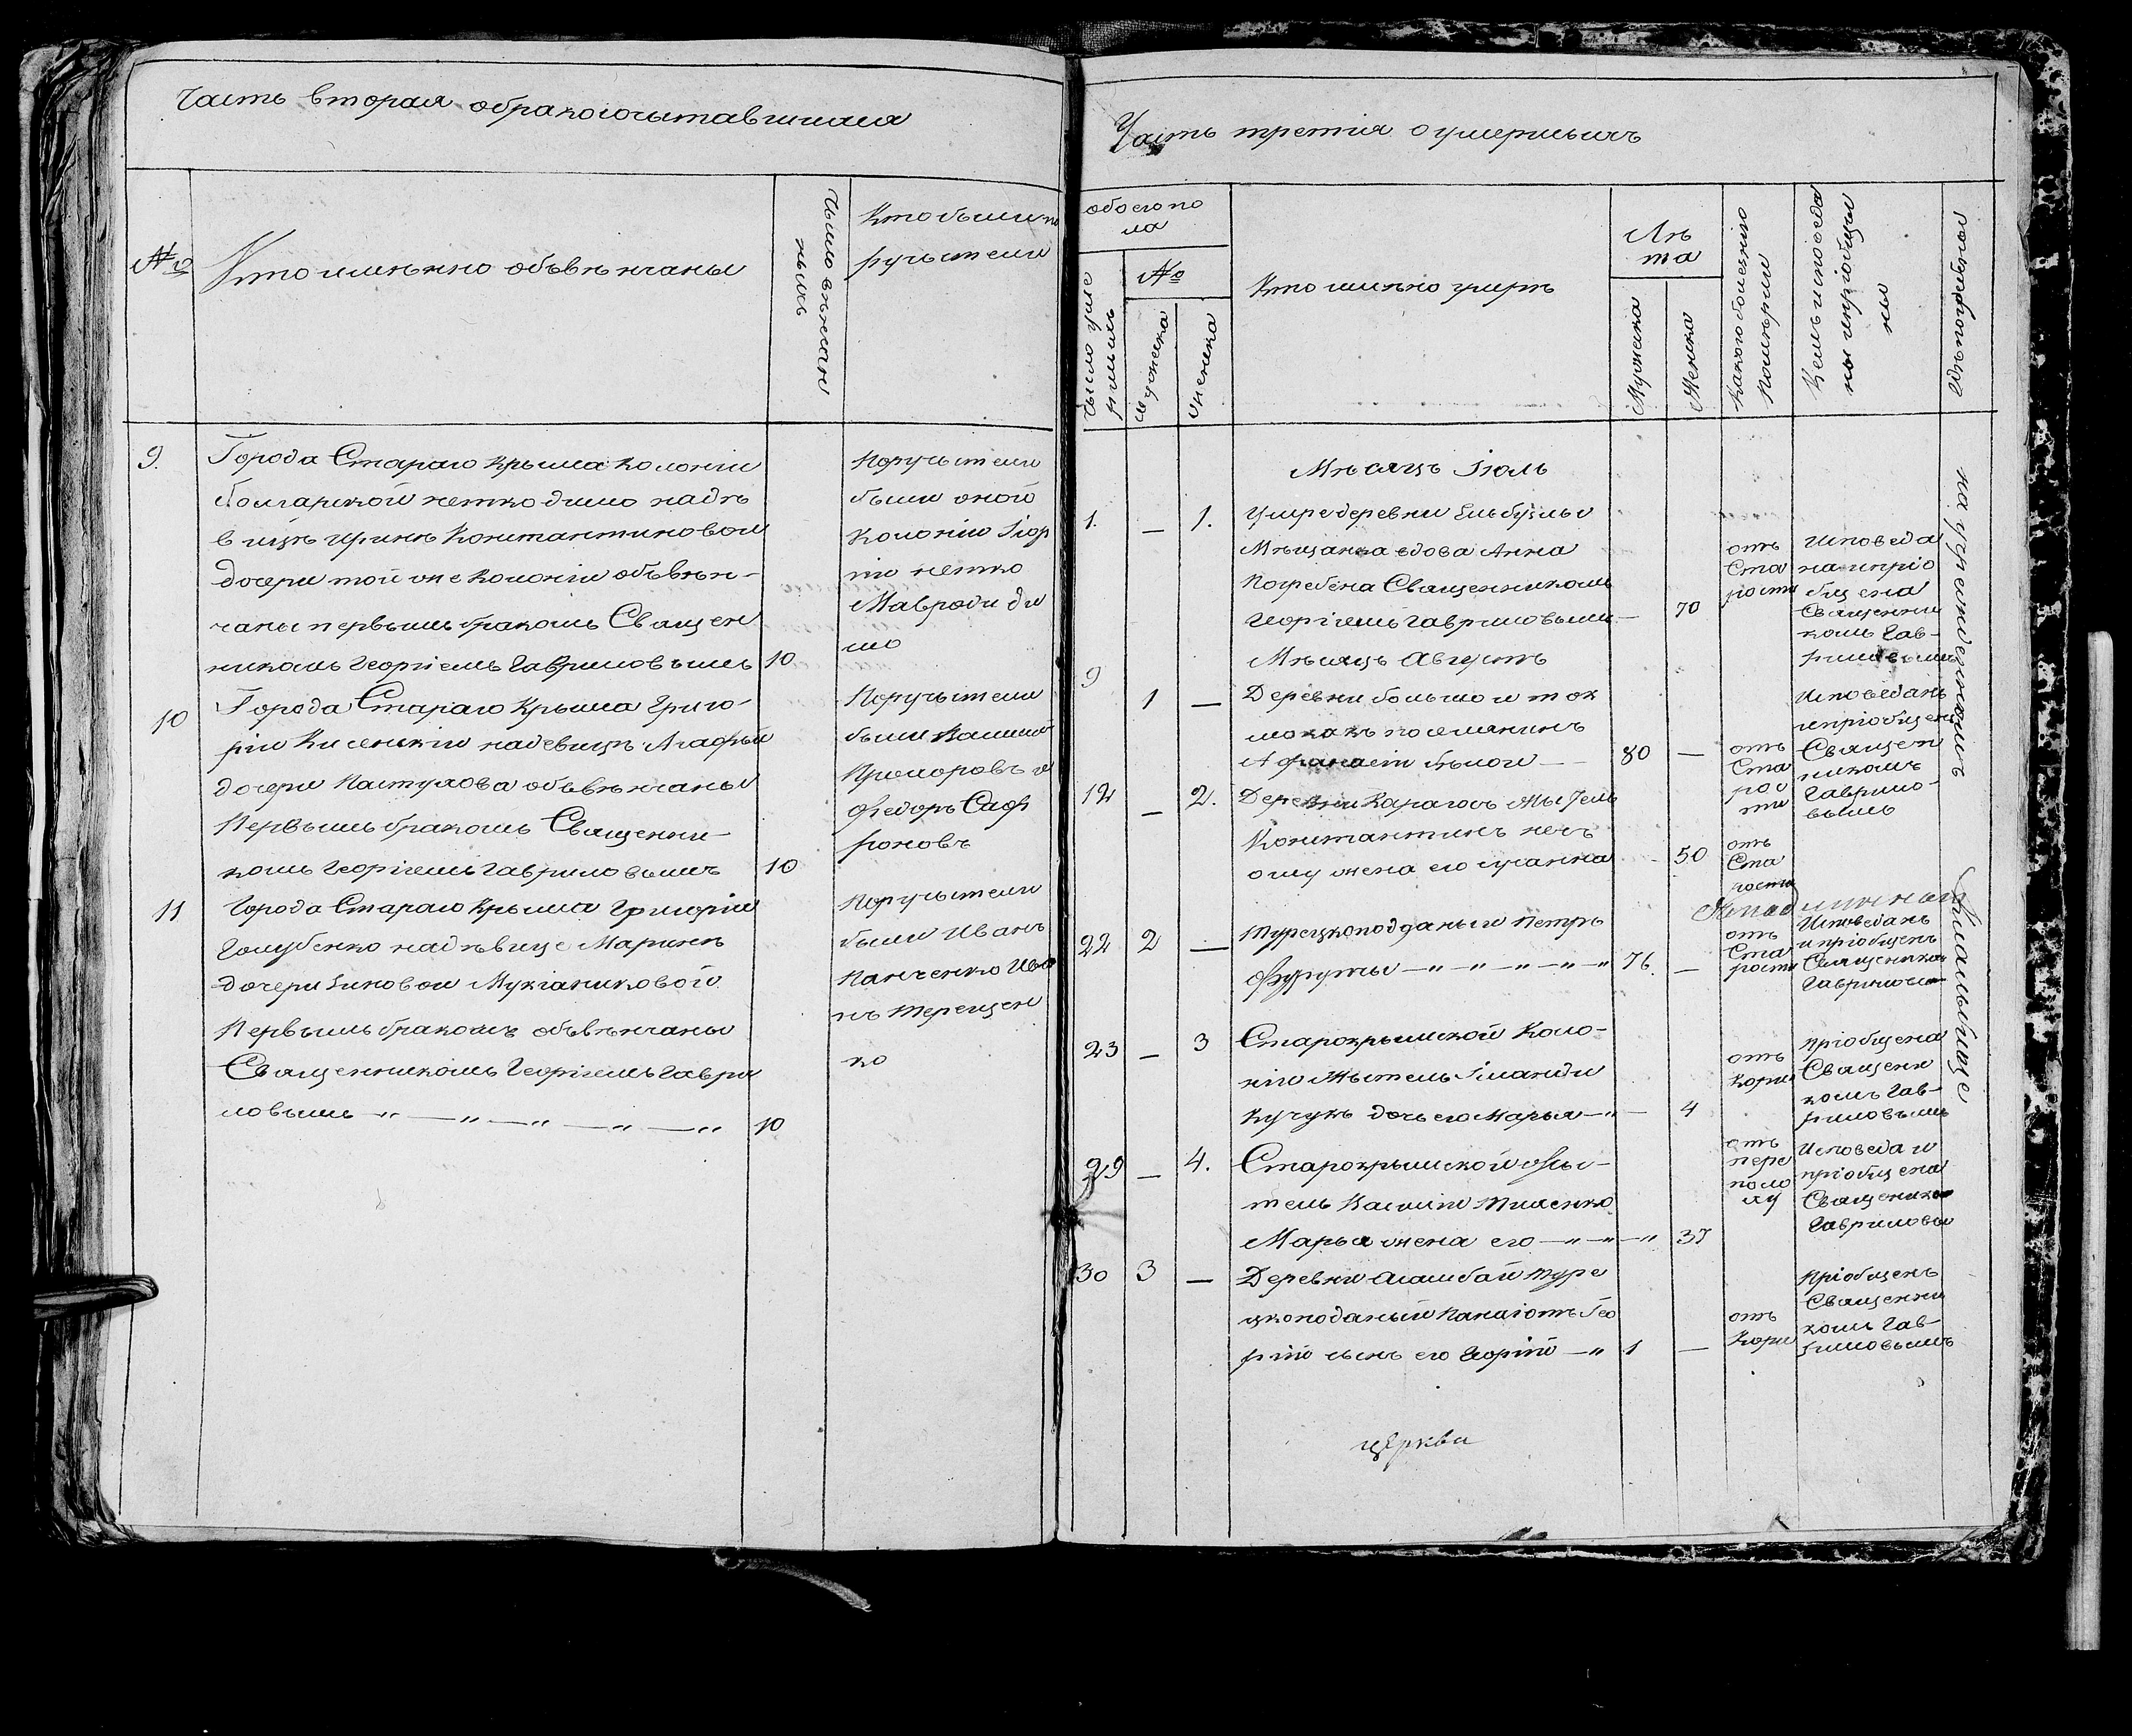 Часть вторая обракосочытавшихся
№
Кто имянно объвѣнчаны
Число вѣнчан
ныхъ
Кто были по
ручытели
9.
Города Стараго Крыма Колоніи
Болгарской нетко димо надѣ
вицѣ иринѣ Константиновой
дочери той же Колоніи объвѣн-
чаны первымъ бракомъ Священ
никомъ Георгіемъ Гавриловымъ 10
Поручытели
были оной
Колоніи Гіор
ги нетко
Мавроди ди
мо
10
Города Стараго Крыма Григо-
рій Кисенкій надевицѣ Агафьи
дочери Пастухова объвѣнчаны
Первымъ бракомъ Священни-
комъ Георгіемъ Гавриловымъ 10
Поручытели
были Василий
Прохоровъ и
Федоръ Саф
роновъ
11
Города Стараго Крыма Григорій
Голубенко надѣвице Маринѣ
дочери Зиновой
Первымъ бракомъ объвѣнчаны
Священникомъ Георгіемъ Гаври
ловымъ —„—„—„—„—„ 10
Поручытели
были Иванъ
Панченко Ива
нъ Терещен
ко
Часть третія оумершыхъ
обоего по
ла
Число уме
ршыхъ
№
мужеска
женска
Кто имянно умрѣ
Лѣ
та
Мужеска
Женска
Какою болезнію
Померли
Кемъ исповеда
ны ипріобще
ны
гдѣ погребены
на гражденскомъ
Кладбище
Мѣсяцъ Іюль
1. — 1.
Умре деревни Ельбузлы
Мѣщанка вдова Анна
Погребена Священникомъ
Георгіемъ Гавриловымъ — 70
отъ
Ста
рости
Исповеда
на ипріо
бщена
Священни
комъ Гав-
риловымъ
Мѣсяцъ Августъ
9 1 —
Деревни большои ток
макъ поселянинъ
Афанасій бѣлои — 80 —
отъ
Ста
рос
ти
Исповеданъ
ипріобщенъ
Священ
никомъ
Гаврило-
вымъ
12 — 2.
Деревни Карагозъ Жытель
Константинъ
жена его сусанна — 50
отъ
Ста
рости
22 2 —
Турецкоподданый Петръ
—„—„—„—„—„ 76. —
отъ
Ста
рости
Исповеданъ
и пріобщенъ
Священико
Гавриловы
23 — 3
Старокрымской Коло-
ніи Жытель
Кучукъ дочь его Марья —„— 4
отъ
Кори
пріобщена
Священи
комъ Гав-
риловымъ
29 — 4.
Старокрымской жы-
тель Василій Тишенко
Марья жена его —„—„—„ 37
отъ
пере
поло
ху
Исповеда и
пріобщена
Священико
Гавриловы
30 3 —
Деревни Аламбай Туре
цкоподаный Панаіотъ Гео
ргій сынъ его Георгій —„ 1 —
отъ
Кори
Пріобщенъ
Священни
комъ Гав-
риловымъ
церкви